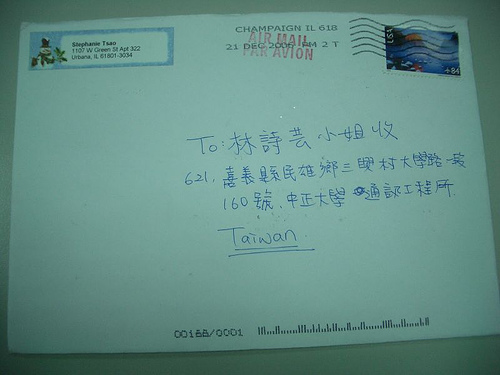 Stephanie Tsao
1107 W Green St Apt 322
Urbana, IL 61801-3034
CHAMPAIGN IL 618
AIR MAIL
21 DEC 2006 PM 2 T
PAR AVION
USA
84
To: 林詩芸 小姐 收
621, 嘉義縣民雄鄉三興村大學路一段
160號, 中正大學 通訊工程所
Taiwan
00188/0001